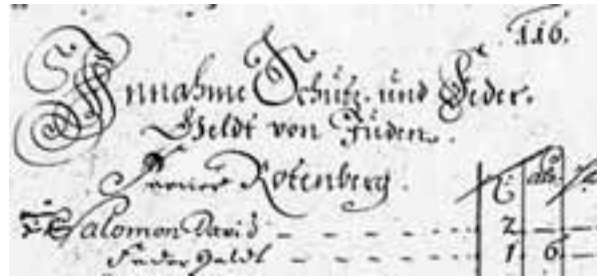 116.
Innahme Schutz- und Feder-
Geldt von Juden.
Ferner Rotenberg.
Salomon David 2
Feder Geldt 1 6